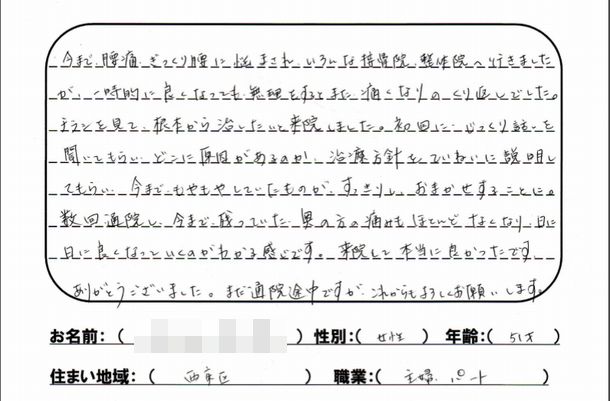 今まで、腰痛、ぎっくり腰に悩まされ、いろんな接骨院、整体院へ行きました
が、一時的に良くなっても、無理をするとまた痛くなりのくり返しでした。
チラシを見て、根本から治したいと来院しました。初回に、じっくり話しを
聞いてもらい、どこに原因があるのか、治療方針をていねいに説明し
てもらい、今までもやもやしていたものが、すっきりし、おまかせすることに。
数回通院し、今まで残っていた、奥の方の痛みもほとんどなくなり、日に
日に良くなっていくのがわかる感じです。来院して本当に良かったです
ありがとうございました。まだ通院途中ですが、これからもよろしくお願いします。
お名前:( ) 性別:( 女性 ) 年齢:( 51才 )
住まい地域:( 西京区 ) 職業:( 主婦 パート )